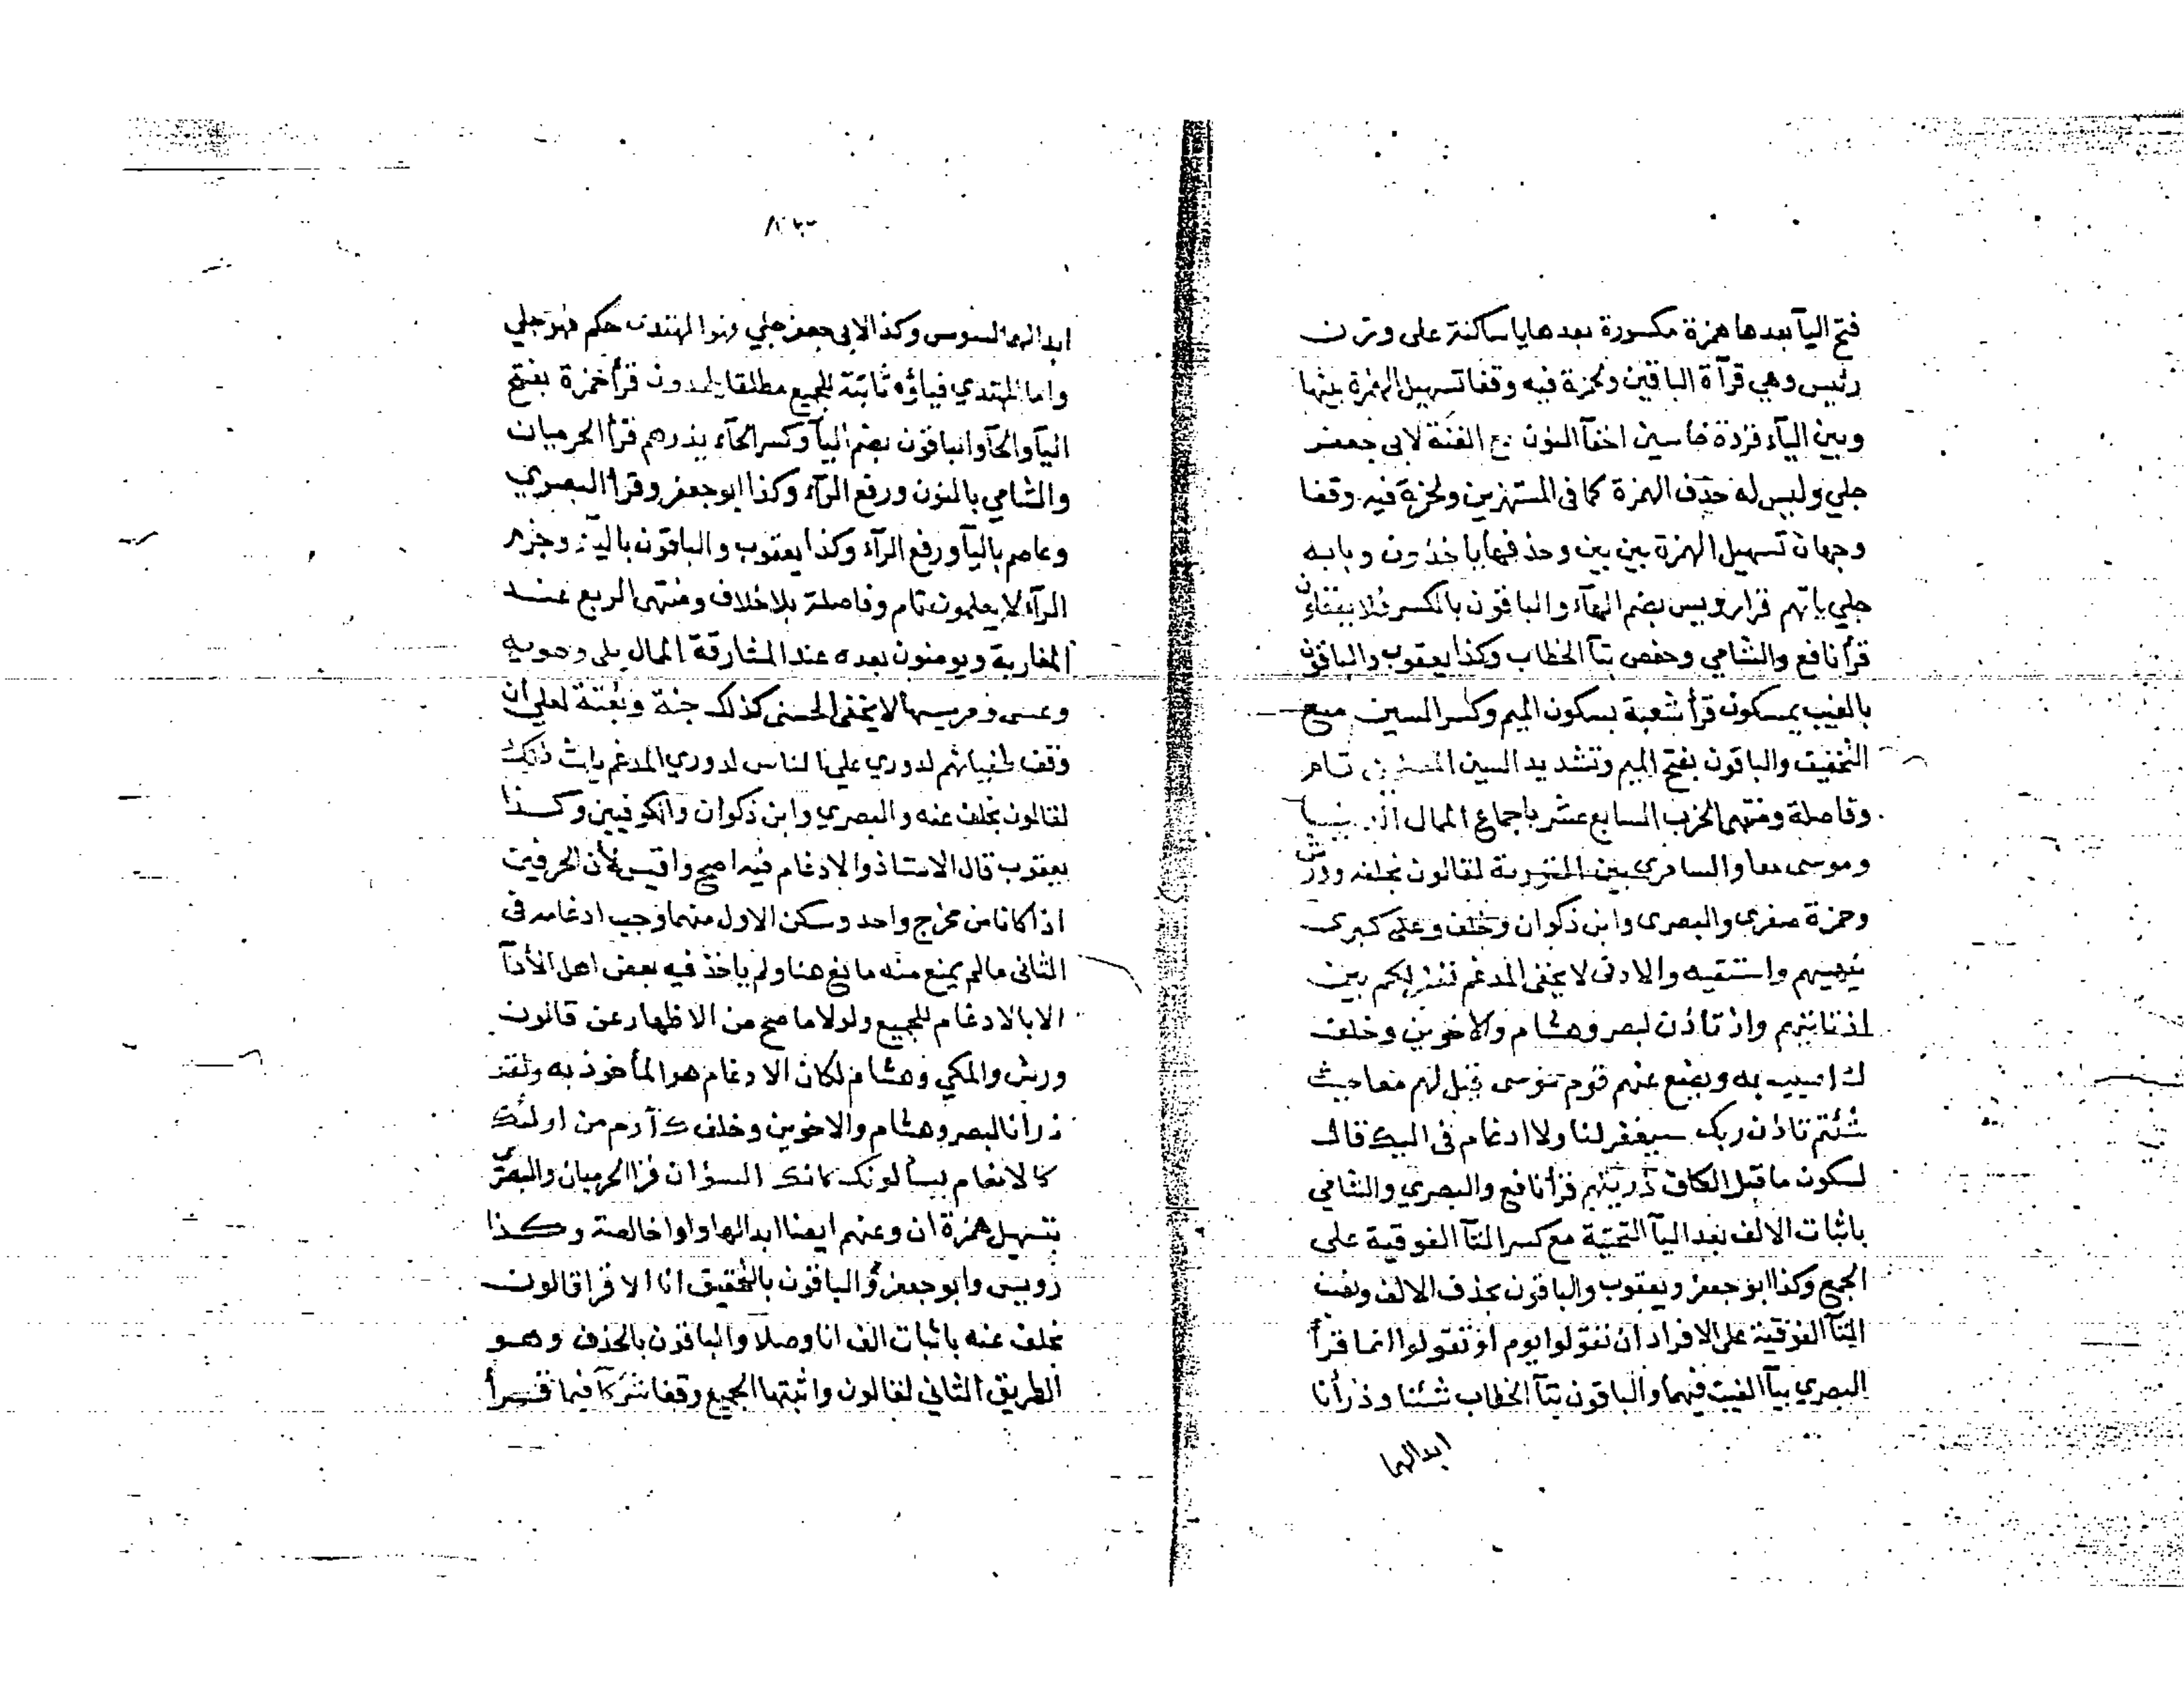 فتح اليآ بعدها همزة مكسورة بعدها يا ساكنة على وزن
رئيس وهي قرآة الباقين ولحمزة فيه وقفا تسهيل الهمزة بينها
وبين اليآء قردة خاسين اخفآ النون مع الغنة لابى جعفر
جلي وليس له حذف الهمزة كما فى المستهزين ولحمزة فيه وقفا
وجهان تسهيل الهمزة بين بين وحذفها ياخذون وبابه
جلي ياتهم قرا رويس بضم الهآء والباقون بالكسر
قرأ نافع والشامي وحفص بتآ الخطاب وكذا يعقوب والباقون
بالغيب يمسكون قرأ شعبة بسكون الميم وكسر السين مع
التخفيف والباقون بفتح الميم وتشديد السين تام
وفاصلة ومنتهى الحزب السابع عشر باجماع الممال
وموسى معا والسامرى بين التورية لقالون بخلفه وورش
وحمزة صغرى والبصرى وابن ذكوان وخلف وعلى كبرى
واستسقيه والادنى لا يخفى المدغم نغفر لكم بين
اذ تاتيهم واذ تاذن لبصر وهشام والاخوين وخلف
ك اصيب به ويضع عنهم قوم موسى قيل لهم معا حيث
شئتم تاذن ربك سيغفر لنا ولا ادغام فى اليك قال
لسكون ما قبل الكاف ذريتهم قرأ نافع والبصري والشامي
باثبات الالف بعد اليآ التحتية مع كسر التآ الفوقية على
الجمع وكذا ابو جعفر ويعقوب والباقون بحذف الالف ونصب
التآ الفوقية على الافراد ان تقولوا يوم او تقولوا انما قرأ
البصري بيآ الغيب فيهما والباقون بتآ الخطاب شئنا وذرأنا
ابدالهما
ابدالهما لسوس وكذا لابى جعفر جلي فهو المهتدى حكم فهو جلي
واما المهتدي فياؤه ثابتة للجميع مطلقا يلحدون قرأ حمزة بفتح
اليآ والحآ والباقون بضم اليآ وكسر الحآء يذرهم قرأ الحرميان
والشامي بالنون ورفع الرآء وكذا ابو جعفر وقرأ البصري
وعاصم باليآ ورفع الرآء وكذا يعقوب والباقون باليآ وجزم
الرآء لا يعلمون تام وفاصلة بلا خلاف ومنتهى الربع عند
المغاربة ويومنون بعده عند المشارقة الممال بلى وهويه
وعسى ومرسيها لا يخفى الحسنى كذلك جنة وبغتة لعلي ان
وقف طغيانهم لدوري علي الناس لدوري المدغم يلهث ذلك
لقالون بخلف عنه والبصري وابن ذكوان والكوفيين وكذا
يعقوب قال الاستاذ والادغام فيه اصح واقيس لأن الحرفين
اذا كانا من مخرج واحد وسكن الاول منهما وجب ادغامه فى
الثانى ما لم يمنع منه مانع هنا ولم ياخذ فيه بعض اهل الأدآ
الا بالادغام للجميع ولولا ما صح من الاظهار عن قالون
ورش والمكي وهشام لكان الادغام هو المأخوذ به ولقد
ذرانا لبصر وهشام والاخوين وخلف ك آدم من اولئك
كالانعام يسألونك كانك السؤ ان قرا الحرميان والبصرى
بتسهيل همزة ان وعنهم ايضا ابدالها واوا خالصة وكذا
رويس وابو جعفر والباقون بالتحقيق انا الا قرا قالون
بخلف عنه باثبات الف انا وصلا والباقون بالحذف وهو
الطريق الثاني لقالون واثبتها الجميع وقفا شركآ فيما قرأ